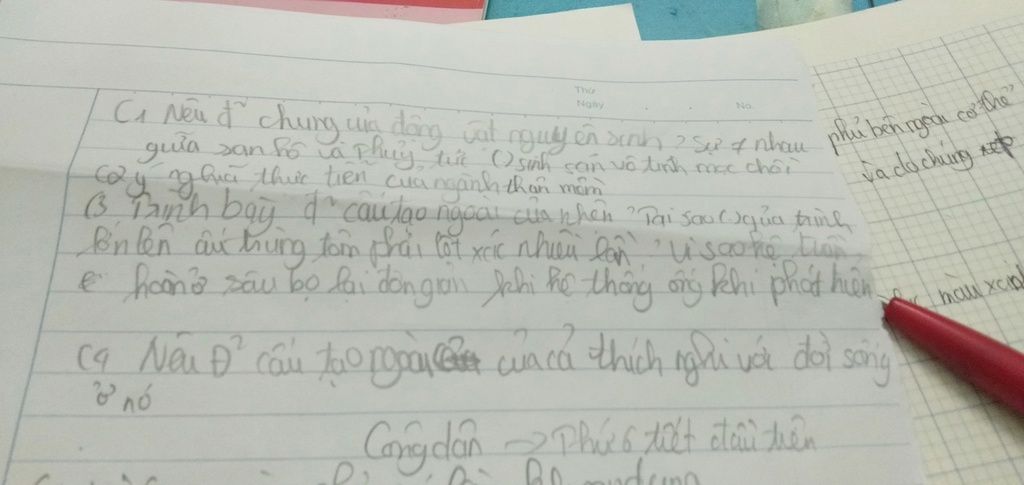 Thứ
Ngày . . No.
C1 Nêu đ² chung của động vật nguyên sinh ? Sự ≠ nhau
giữa san hô và thuỷ tức () sinh sản vô tính mọc chồi
C2 ý nghĩa thực tiễn của ngành thân mềm
C3 Trình bày đ² cấu tạo ngoài của nhện ? Tại sao () qúa trình
lớn lên ấu trùng tôm phải lột xác nhiều lần ? Vì sao hệ tuần
hoàn ở sâu bọ lại đơn giản khi hệ thống ống khí phát hiện
C4 Nêu Đ² cấu tạo ngoài của cá thích nghi với đời sống
ở nó
Công dân → Phút 6 tiết đầu tiên
phủ bên ngoài cơ thể
và do chúng
màu xanh